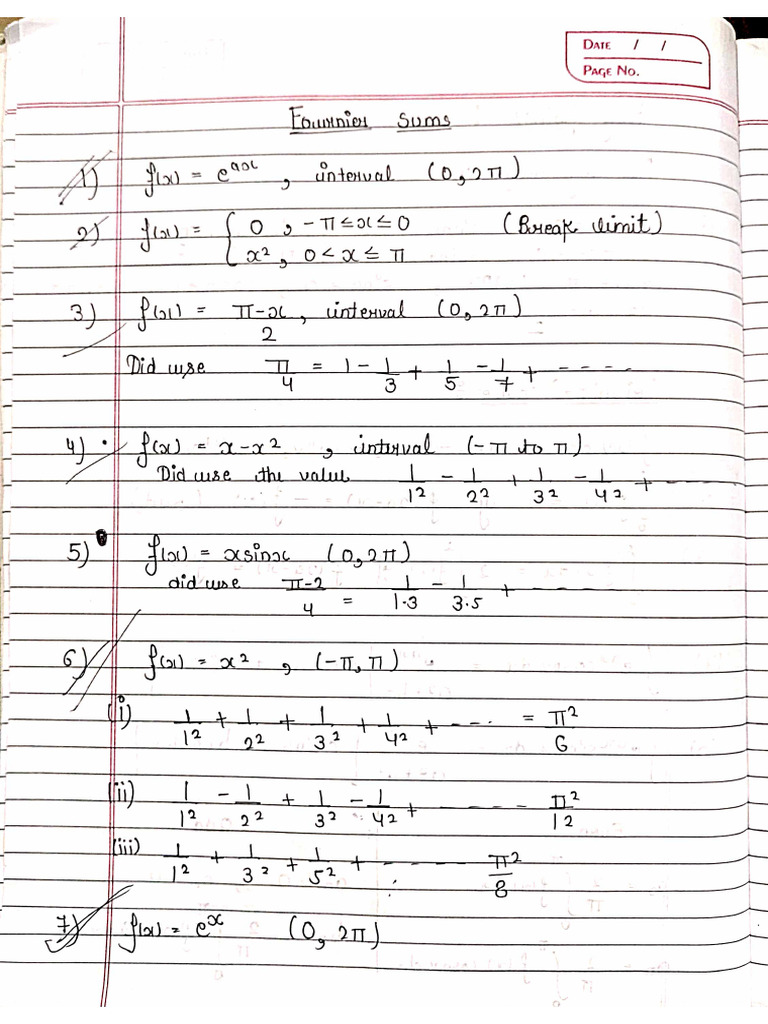 DATE / /
PAGE NO.
Fournier Sums
1) f(x) = e^ax, interval (0, 2π)
2) f(x) = { 0, -π ≤ x ≤ 0 (Break limit)
x², 0 < x ≤ π
3) f(x) = π-x/2, interval (0, 2π)
Did use π/4 = 1 - 1/3 + 1/5 - 1/7 + - - - -
4) • f(x) = x-x², interval (-π to π)
Did use the value 1/1² - 1/2² + 1/3² - 1/4² + - - - -
5) f(x) = xsinx (0, 2π)
did use π-2/4 = 1/1·3 - 1/3·5 + - - - -
6) f(x) = x², (-π, π)
(i) 1/1² + 1/2² + 1/3² + 1/4² + - - - = π²/6
(ii) 1/1² - 1/2² + 1/3² - 1/4² + - - - - - π²/12
(iii) 1/1² + 1/3² + 1/5² + - - - - - π²/8
7) f(x) = e^x (0, 2π)